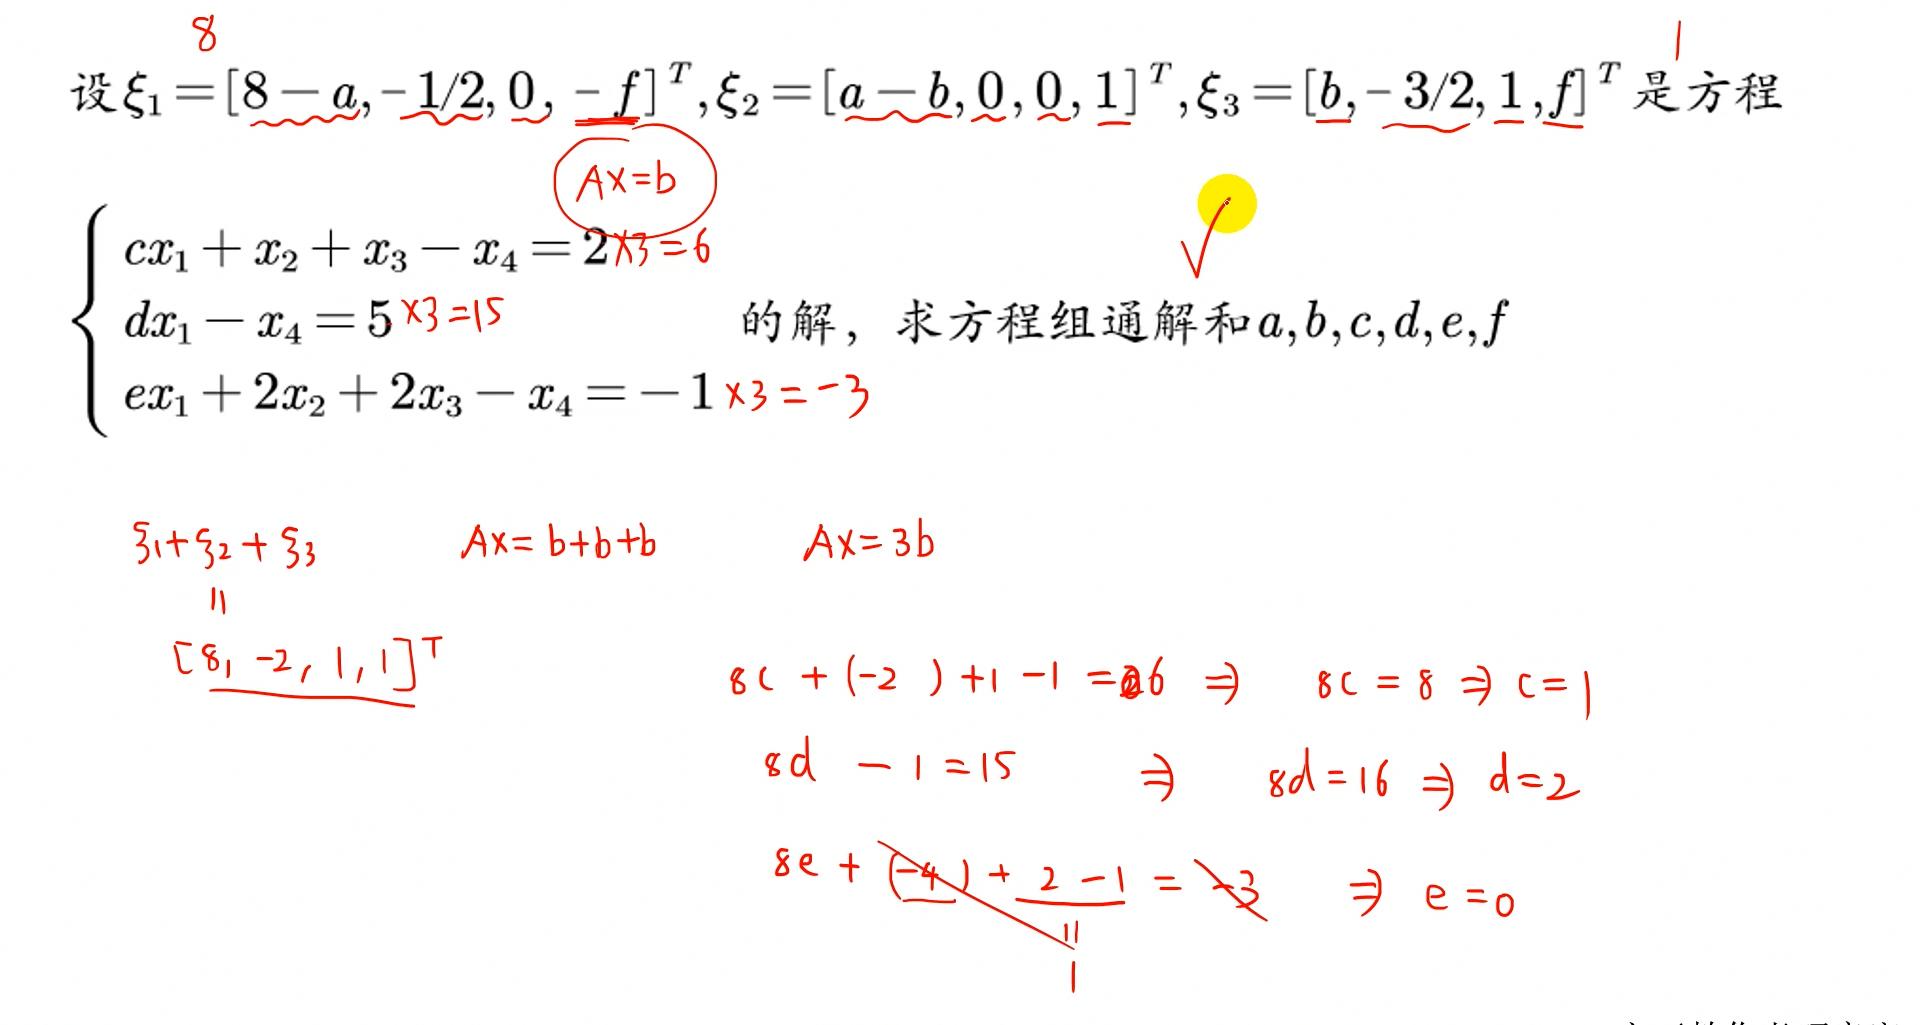 8
1
设ξ₁=[8−a,−1/2,0,−f]ᵀ,ξ₂=[a−b,0,0,1]ᵀ,ξ₃=[b,−3/2,1,f]ᵀ是方程
Ax=b
cx₁+x₂+x₃−x₄=2 ×3=6
dx₁−x₄=5 ×3=15 的解，求方程组通解和a,b,c,d,e,f
ex₁+2x₂+2x₃−x₄=−1 ×3=−3
ξ₁+ξ₂+ξ₃ Ax=b+b+b Ax=3b
=
[8,−2,1,1]ᵀ
8c+(−2)+1−1=6 ⇒ 8c=8 ⇒ c=1
8d−1=15 ⇒ 8d=16 ⇒ d=2
8e+(−4)+2−1=−3 ⇒ e=0
=
1